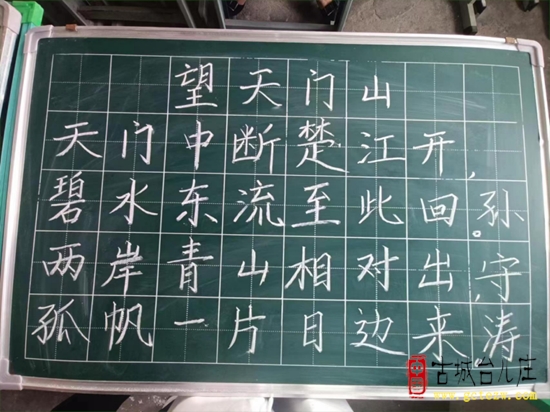 望天门山
天门中断楚江开，
碧水东流至此回。
两岸青山相对出，
孤帆一片日边来。
孙守涛
古城台儿庄